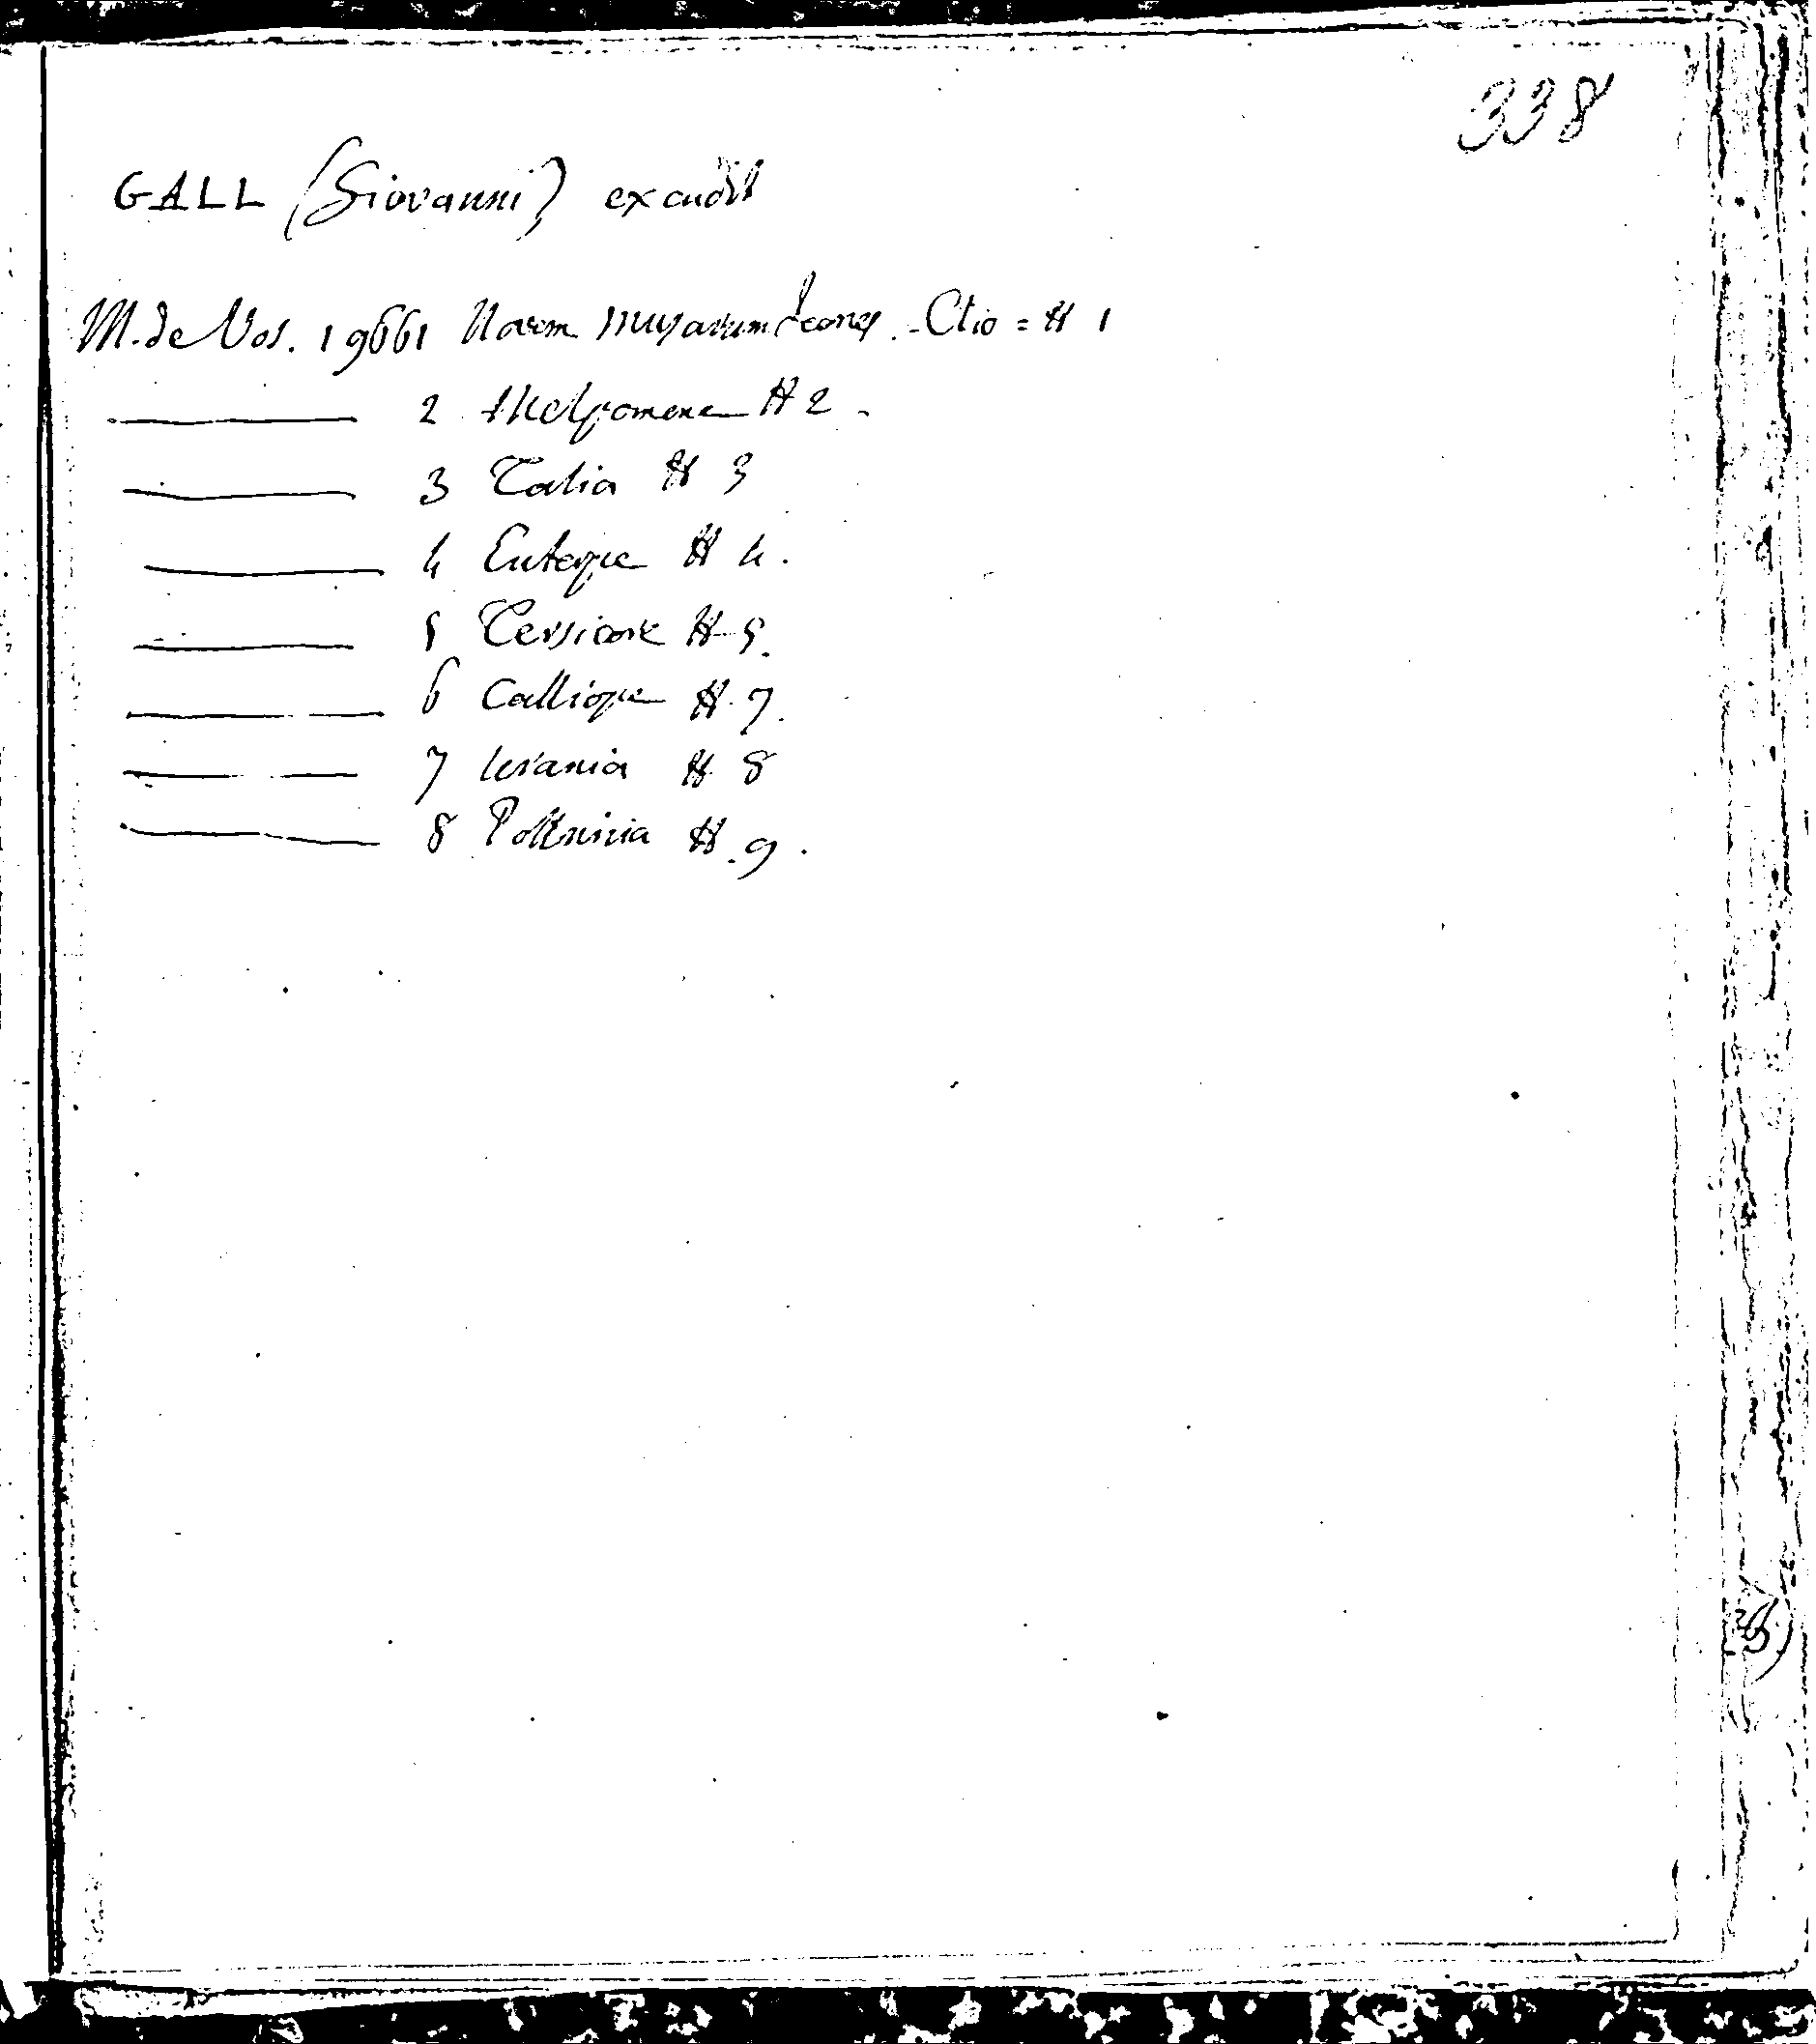 338
GALL (Giovanni) excudit
M. de Vos. 19661 Novem musarum Icones. - Clio = # 1
2 Melpomene # 2 -
3 Talia # 3
4 Euterpe # 4.
5 Tersicore # 5.
6 Calliope # 7.
7 Urania # 8
8 Polinnia # 9.